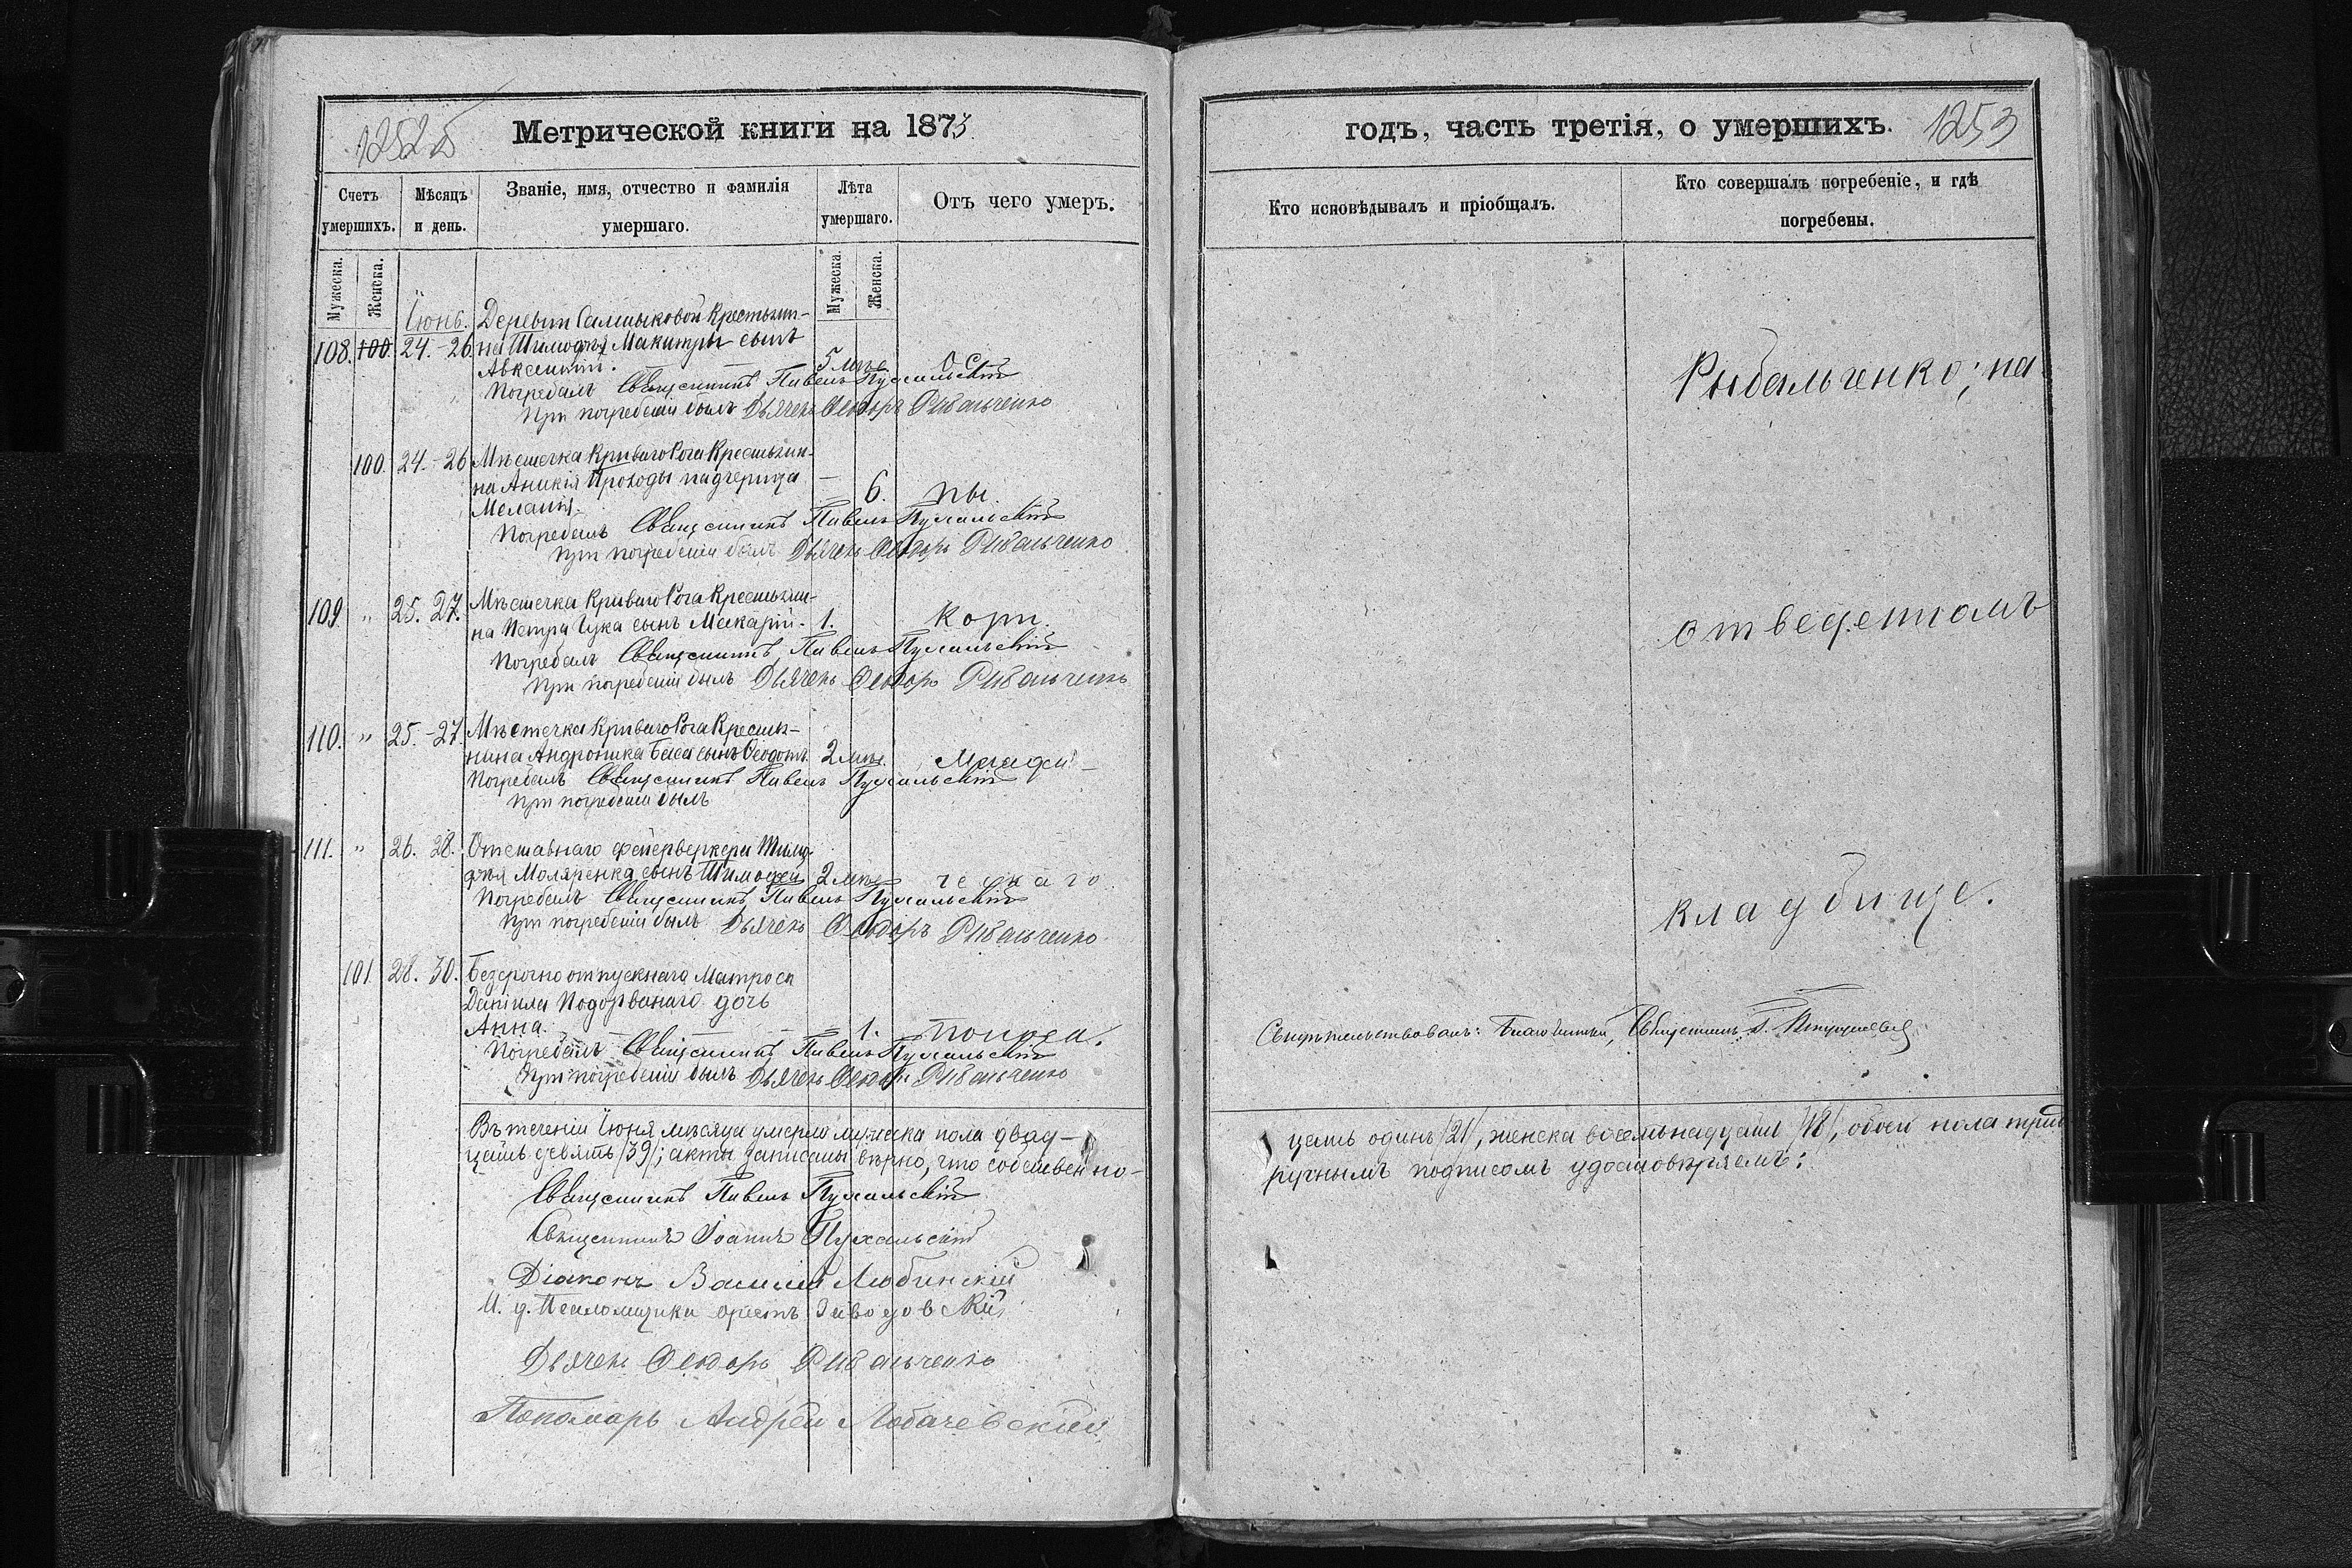 1252б
Метрической книги на 1873
Счетъ умершихъ.
Мѣсяцъ и день.
Званіе, имя, отчество и фамилія умершаго.
Лѣта умершаго.
Отъ чего умеръ.
Мужеска.
Женска.
Мужеска.
Женска.
Іюнь. Деревни Крестьяни-
108. 100. 24.-26. на Тимофея Макитры сынъ
Авксентій. 5 мѣс. Ос
Погребалъ Священникъ Павелъ Пухальскій
При погребеніи былъ Дьячекъ Ѳеодоръ Рибальченко
100. 24.-26 Мѣстечка Криваго Рога Крестьяни-
на Аникія Проходы падчерица
Меланія. 6. пы.
Погребалъ Священникъ Павелъ Пухальскій
При погребеніи былъ Дьячекъ Ѳеодоръ Рибальченко
109. " 25. 27. Мѣстечка Криваго Рога Крестьяни-
на Петра Чука сынъ Макарій. 1. Кори.
Погребалъ Священникъ Павелъ Пухальскій
При погребеніи былъ Дьячекъ Ѳеодоръ Рибальченко
110. " 25.-27. Мѣстечка Криваго Рога Крестья-
нина Андроника Баса сынъ Ѳеодотъ. 2 мѣс. Младен-
Погребалъ Священникъ Павелъ Пухальскій
При погребеніи былъ
111. " 26. 28. Отставнаго фейерверкера Тимо-
фея Моляренка сынъ Тимофей 2 мѣс ческаго
Погребалъ Священникъ Павелъ Пухальскій
При погребеніи былъ Дьячекъ Ѳеодоръ Рибальченко
101 28. 30. Безсрочно отпускнаго Матроса
Даніила Подорванаго дочь
Анна. 1. поноса.
Погребалъ Священникъ Павелъ Пухальскій
При погребеніи былъ Дьячекъ Ѳеодоръ Рибальченко
Въ теченіи Іюня мѣсяца умерло мужеска пола двад-
цать девять /39/; акты записаны вѣрно, что собственно-
Священникъ Павелъ Пухальскій
Священникъ Іоаннъ Пухальскій
Діаконъ Василій Любинскій
И. д. Псаломщика Орестъ
Дьячекъ Ѳеодоръ Рибальченко
Пономарь Андрей Лобачевскій
годъ, часть третія, о умершихъ. 1253
Кто исповѣдывалъ и пріобщалъ.
Кто совершалъ погребеніе, и гдѣ погребены.
Рыбальченко; на
отведенномъ
кладбище.
Свидѣтельствовалъ: Благочинный, Священникъ
цать одинъ /21/, женска восемьнадцать /18/, обоего пола трид
ручнымъ подписомъ удостовѣряемъ: